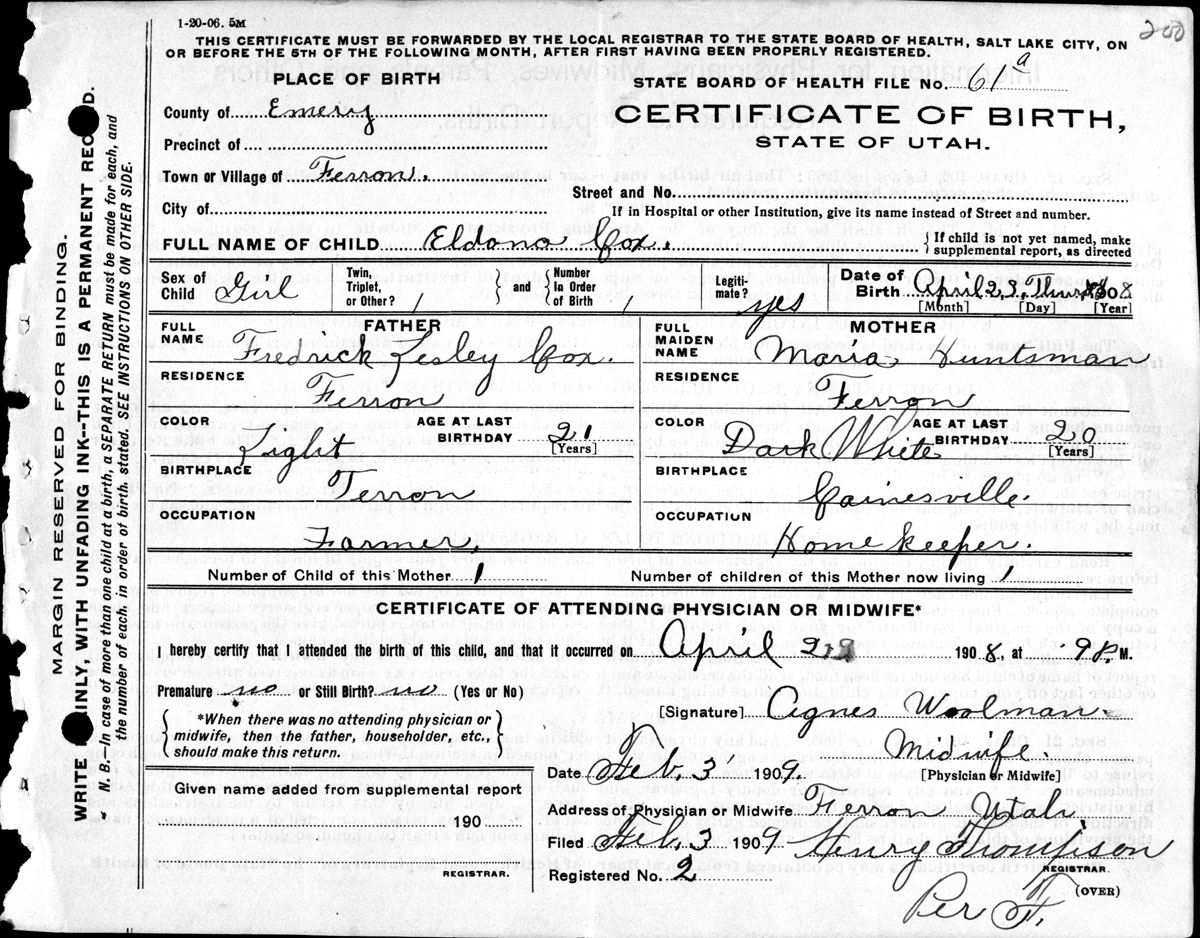 1-20-06. 5M
200
THIS CERTIFICATE MUST BE FORWARDED BY THE LOCAL REGISTRAR TO THE STATE BOARD OF HEALTH, SALT LAKE CITY, ON
OR BEFORE THE 5TH OF THE FOLLOWING MONTH, AFTER FIRST HAVING BEEN PROPERLY REGISTERED.
PLACE OF BIRTH
STATE BOARD OF HEALTH FILE No. 61a
County of Emery
CERTIFICATE OF BIRTH,
Precinct of
STATE OF UTAH.
Town or Village of Ferron.
Street and No.
City of
If in Hospital or other Institution, give its name instead of Street and number.
FULL NAME OF CHILD Eldona Cox.
{ If child is not yet named, make
supplemental report, as directed
Sex of Child Girl
Twin, Triplet, or Other? 1
} and { Number In Order of Birth 1
Legiti-mate? yes
Date of Birth April 23, Thurs 1908
[Month] [Day] [Year]
FATHER
FULL NAME Fredrick Lesley Cox.
RESIDENCE
Ferron
COLOR Light
AGE AT LAST BIRTHDAY 21
[Years]
BIRTHPLACE
Ferron
OCCUPATION
Farmer,
MOTHER
FULL MAIDEN NAME Maria Huntsman
RESIDENCE
Ferron
COLOR Dark White
AGE AT LAST BIRTHDAY 20
[Years]
BIRTHPLACE
Cainesville.
OCCUPATION
Home keeper.
Number of Child of this Mother 1
Number of children of this Mother now living 1
CERTIFICATE OF ATTENDING PHYSICIAN OR MIDWIFE*
I hereby certify that I attended the birth of this child, and that it occurred on April 23 1908, at 9 P. M.
Premature no or Still Birth? no (Yes or No)
{ *When there was no attending physician or
midwife, then the father, householder, etc.,
should make this return. }
[Signature] Agnes Woolman
Midwife.
Date Feb. 3 1909.
[Physician or Midwife]
Given name added from supplemental report
190
REGISTRAR.
Address of Physician or Midwife Ferron Utah
Filed Feb. 3 1909 Henry Thompson
REGISTRAR.
Registered No. 2
(OVER)
Per F.
MARGIN RESERVED FOR BINDING.
WRITE INLY, WITH UNFADING INK--THIS IS A PERMANENT RECO D.
N. B.—In case of more than one child at a birth, a SEPARATE RETURN must be made for each, and
the number of each, in order of birth, stated. SEE INSTRUCTIONS ON OTHER SIDE.